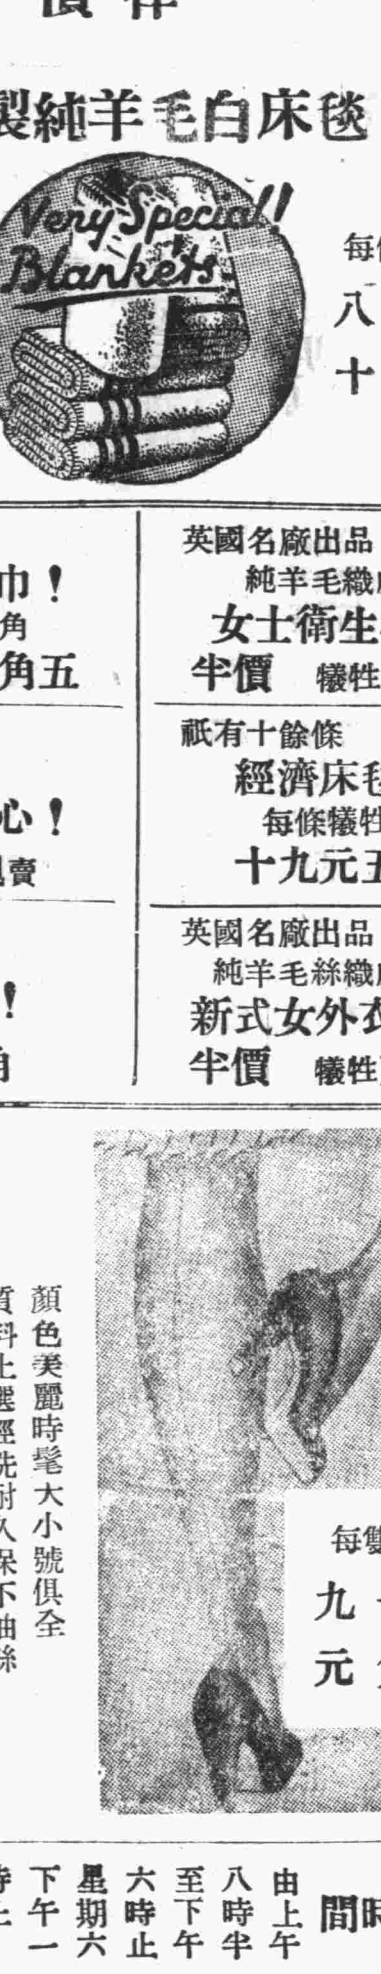 製純羊毛白床毯
Very Special!!
Blankets
每
八
十
巾！
角
角五
心！
賣
！
英國名廠出品
純羊毛織
女士衛生
半價 犧牲
祇有十餘條
經濟床毯
每條犧牲
十九元五
英國名廠出品
純羊毛絲織
新式女外衣
半價 犧牲
顏色美麗時髦大小號俱全
質料上選經洗耐久保不抽絲
每雙
九
元
時間
由上午
八時半
至下午
六時止
星期六
下午一